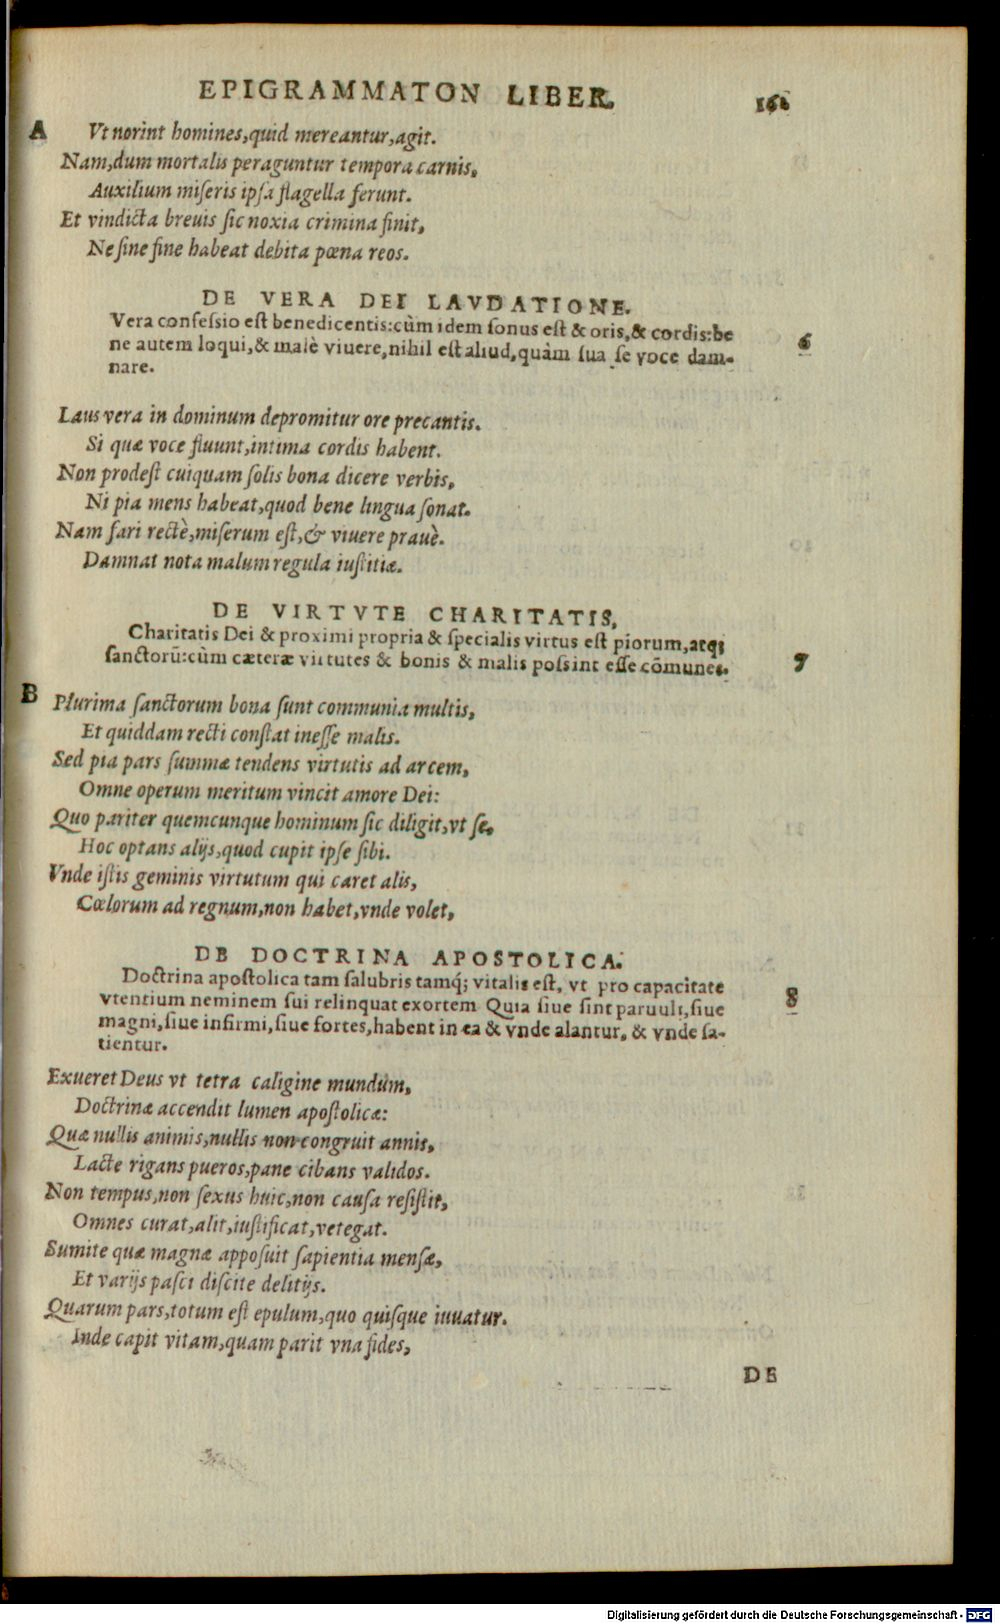 EPIGRAMMATON LIBER.
A Vt norint homines, quid mereantur, agit.
Nam, dum mortalis peraguntur tempora carnis,
Auxilium miseris ipsa flagella ferunt.
Et vindicta breuis sic noxia crimina finit,
Ne sine fine habeat debita pœna reos.
DE VERA DEI LAVDATIONE.
Vera confessio est benedicentis: cùm idem sonus est & oris, & cordis: be
ne autem loqui, & malè viuere, nihil est aliud, quàm sua se voce dam- 6
nare.
Laus vera in dominum depromitur ore precantis.
Si quæ voce fluunt, intima cordis habent.
Non prodest cuiquam solis bona dicere verbis,
Ni pia mens habeat, quod bene lingua sonat.
Nam fari rectè, miserum est, & viuere prauè.
Damnat nota malum regula iustitiæ.
DE VIRTVTE CHARITATIS,
Charitatis Dei & proximi propria & specialis virtus est piorum, atq;
sanctorũ: cùm cæteræ virtutes & bonis & malis possint esse cõmunes. 7
B Plurima sanctorum bona sunt communia multis,
Et quiddam recti constat inesse malis.
Sed pia pars summæ tendens virtutis ad arcem,
Omne operum meritum vincit amore Dei:
Quo pariter quemcunque hominum sic diligit, vt se.
Hoc optans alijs, quod cupit ipse sibi.
Vnde istis geminis virtutum qui caret alis,
Cœlorum ad regnum, non habet, vnde volet,
DE DOCTRINA APOSTOLICA.
Doctrina apostolica tam salubris tamq́; vitalis est, vt pro capacitate
vtentium neminem sui relinquat exortem Quia siue sint paruuli, siue 8
magni, siue infirmi, siue fortes, habent in ea & vnde alantur, & vnde sa-
tientur.
Exueret Deus vt tetra caligine mundum,
Doctrinæ accendit lumen apostolicæ:
Quæ nullis animis, nullis non congruit annis,
Lacte rigans pueros, pane cibans validos.
Non tempus, non sexus huic, non causa resistit,
Omnes curat, alit, iustificat, vetegat.
Sumite quæ magnæ apposuit sapientia mensæ,
Et varijs pasci discite delitijs.
Quarum pars, totum est epulum, quo quisque iuuatur.
Inde capit vitam, quam parit vna fides,
DE
Digitalisierung gefördert durch die Deutsche Forschungsgemeinschaft - DFG